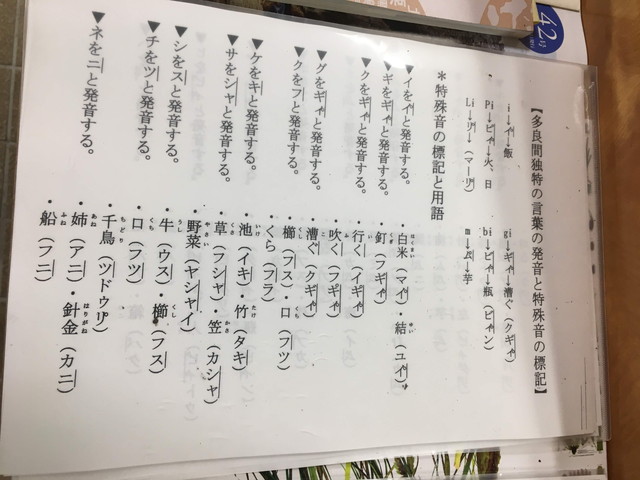 【多良間独特の言葉の発音と特殊音の標記】
i→イ→飯
gi→ギィ→漕ぐ(クギィ)
Pi→ピィ→火、日
bi→ビィ→瓶(ビィン)
Li→リ→(マーリ)
m→ム→芋
*特殊音の標記と用語
▼イをイと発音する。
・白米(マイ)・結(ユイ)
▼ギをギィと発音する。
・釘(フギィ)
▼クをギィと発音する。
・行く(イギィ)
・吹く(フギィ)
▼グをギィと発音する。
・漕ぐ(クギィ)
▼クをフと発音する。
・櫛(フス)・口(フツ)
・くら(フラ)
▼ケをキと発音する。
・池(イキ)・竹(タキ)
▼サをシャと発音する。
・草(フシャ)・笠(カシャ)
・野菜(ヤシャイ)
▼シをスと発音する。
・牛(ウス)・櫛(フス)
▼チをツと発音する。
・口(フツ)
・千鳥(ツドゥリ)
▼ネをニと発音する。
・姉(アニ)・針金(カニ)
・船(フニ)
42